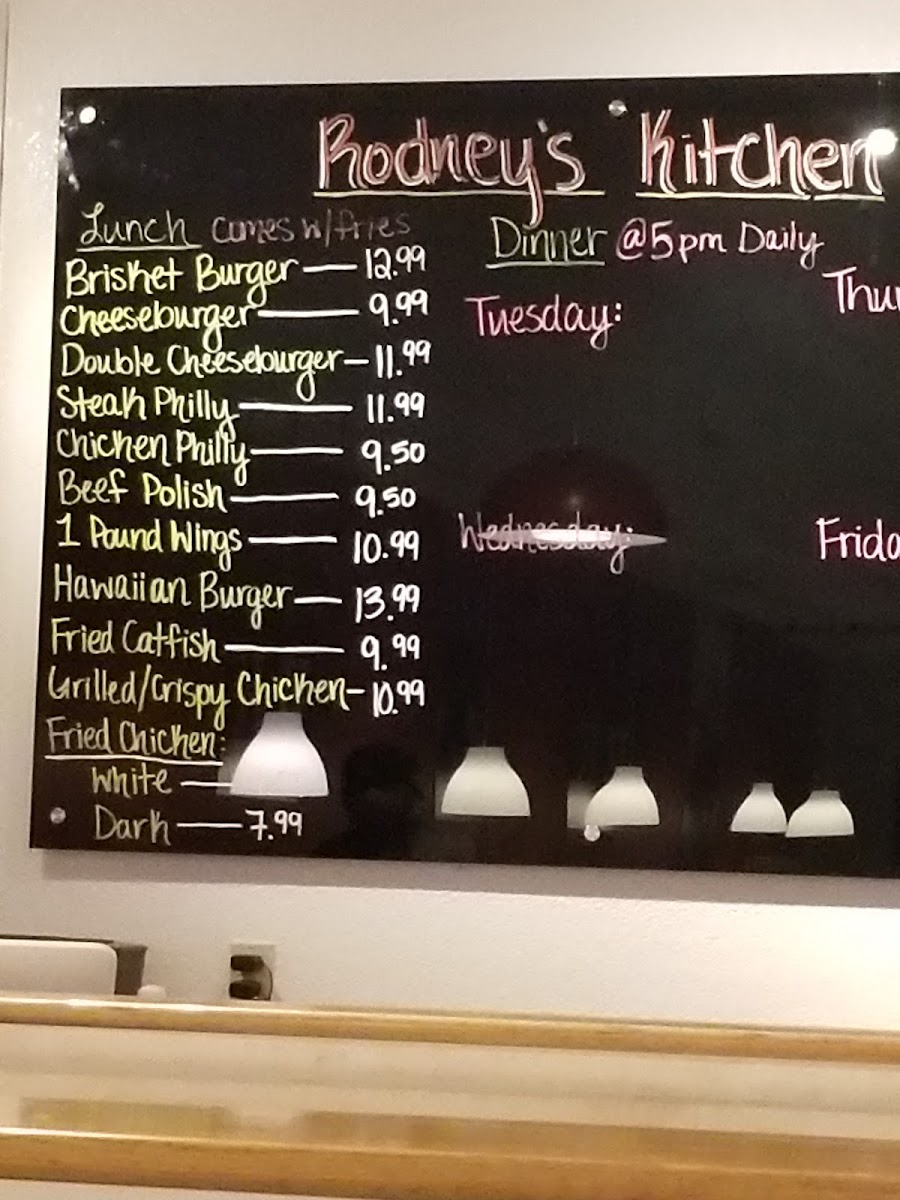 Rodney's Kitchen
Lunch comes w/fries
Brisket Burger — 12.99
Cheeseburger — 9.99
Double Cheeseburger — 11.99
Steak Philly — 11.99
Chicken Philly — 9.50
Beef Polish — 9.50
1 Pound Wings — 10.99
Hawaiian Burger — 13.99
Fried Catfish — 9.99
Grilled/Crispy Chicken - 10.99
Fried Chicken:
White —
Dark — 7.99
Dinner @5pm Daily
Tuesday:
Wednesday:
Thu
Frida